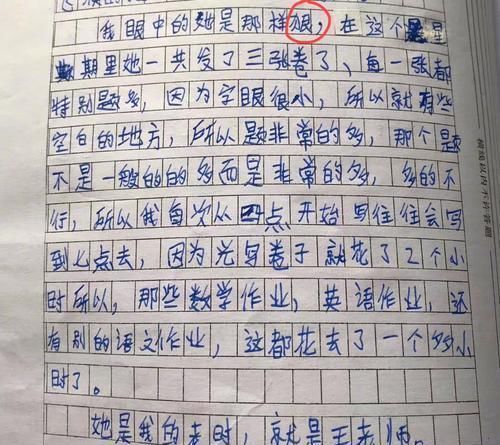 我眼中的她是那样狠，在这个星
期里她一共发了三张卷了、每一张都
特别题多，因为字眼很小，所以就有些
空白的地方，所以题非常的多，那个题
不是一般的的多而是非常的多，多的不
行，所以我每次从四点开始写往往会写
到七点去，因为光写卷子就花了2个小
时所以，那些数学作业，英语作业，还
有别的语文作业，这都花去了一个多小
时了。
她是我的老时，就是王老师。